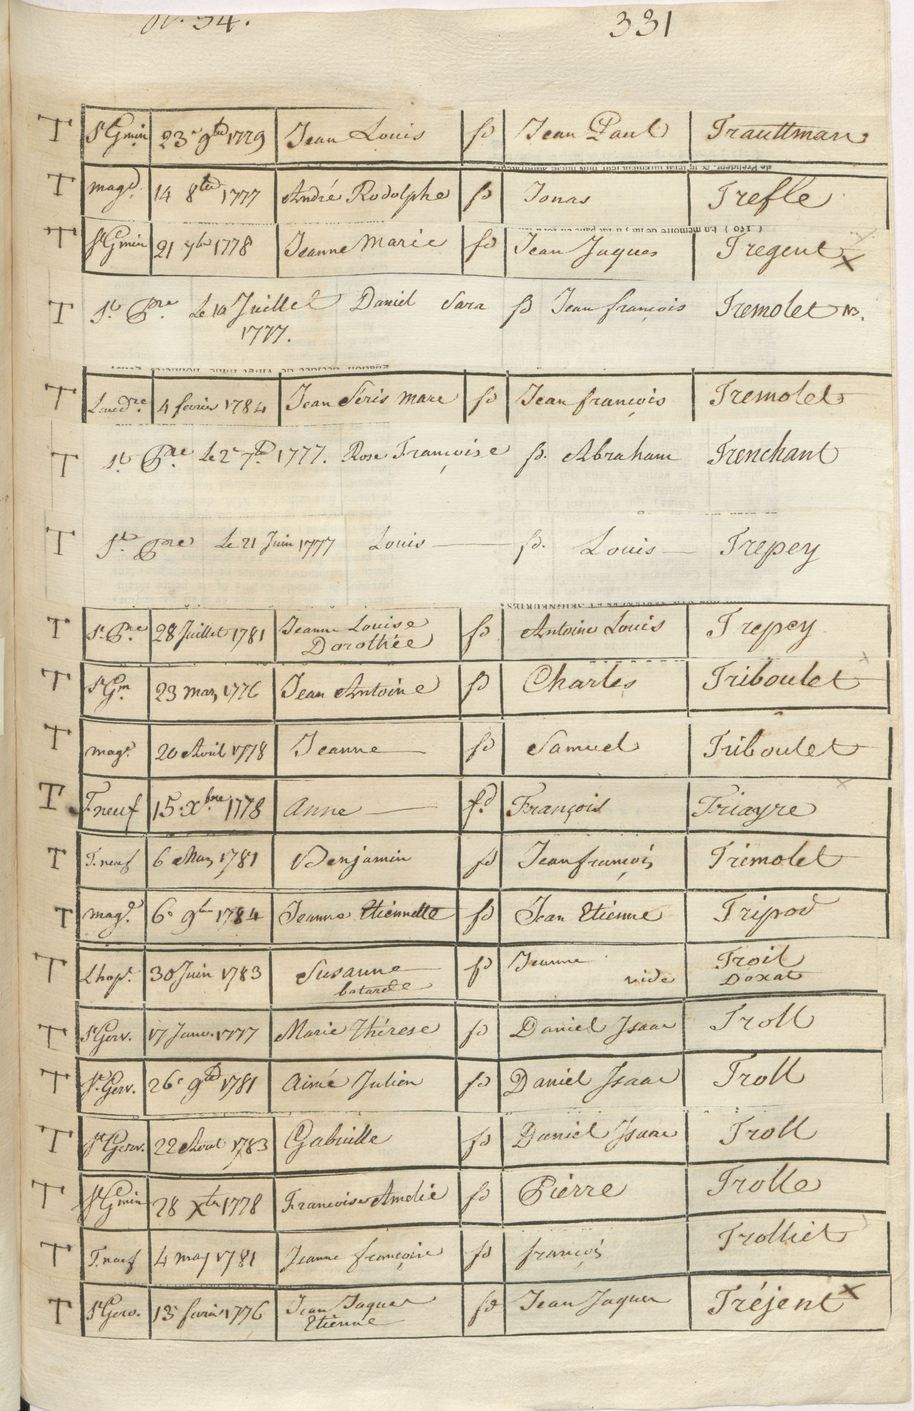 N. 34. 331
T St Gmin 23e 9bre 1779 Jean Louis fd Jean Paul Trauttman
T magd. 14 8bre 1777 André Rodolphe fd Jonas Trefle
T St Gmin 21 7bre 1778 Jeanne Marie fd Jean Jaques Tregent x
T St. Pre. Le 10 Juillet Daniel Sara fd Jean françois Tremolet
1777.
T 4 fevrier 1784 Jean Marc fd Jean françois Tremolet
T St. Pre Le 2e 7bre 1777. Rose Françoise fd. Abraham Trenchant
T St. Pre Le 21 Juin 1777 Louis fd. Louis Trepey
T St. Pre 28 Juillet 1781 Jeanne Louise fd Antoine Louis Trepey
Dorothée
T St Gm 23 mars 1776 Jean Antoine fd Charles Triboulet
T magd. 20 Avril 1778 Jeanne fd Samuel Triboulet
T T. neuf 15 Xbre 1778 Anne fd François Triayre
T T. neuf 6 Mars 1781 Benjamin fd Jean françois Trimolet
T magd. 6e 9bre 1784 Jeanne Etiennette fd Jean Etienne Tripod
T Lhopl. 30 Juin 1783 Susanne fd Jeanne Troit
batarde vide Doxat
T St Gerv. 17 Janv. 1777 Marie Thérese fd Daniel Isaac Troll
T St Gerv. 26e 9bre 1781 Aimé Julien fd Daniel Isaac Troll
T St Gerv. 22 Aout 1783 Gabrielle fd Daniel Isaac Troll
T St Gmin 28 Xbre 1778 Françoise Amelie fd Pierre Trolle
T T. neuf 4 may 1781 Jeanne françoise fd françois Trolliet
T St Gerv. 13 fevrier 1776 Jean Jaques fd Jean Jaques Tréjent x
Etienne